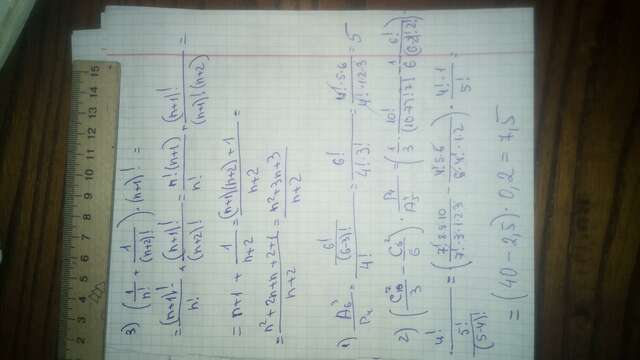 3) (1/n! + 1/(n+2)!) · (n+1)! =
= (n+1)!/n! + (n+1)!/(n+2)! = n!(n+1)/n! + (n+1)!/((n+1)!(n+2)) =
= n+1 + 1/(n+2) = ((n+1)(n+2)+1)/(n+2) =
= (n²+2n+n+2+1)/(n+2) = (n²+3n+3)/(n+2)
1) A₆³/P₄ = (6!/(6-3)!)/4! = 6!/(4!·3!) = (4!·5·6)/(4!·1·2·3) = 5
2) (C₁₀⁷/3 - C₆²/6) · P₄/A₅⁴ = (1/3 · 10!/((10-7)!7!) - 1/6 · 6!/((6-2)!·2!)) ·
4!/(5!/(5-4)!) = (7!·8·9·10/(7!·3·1·2·3) - 4!·5·6/(6·4!·1·2)) · 4!·1/5! =
= (40-2,5)·0,2 = 7,5
1 2 3 4 5 6 7 8 9 10 11 12 13 14 15